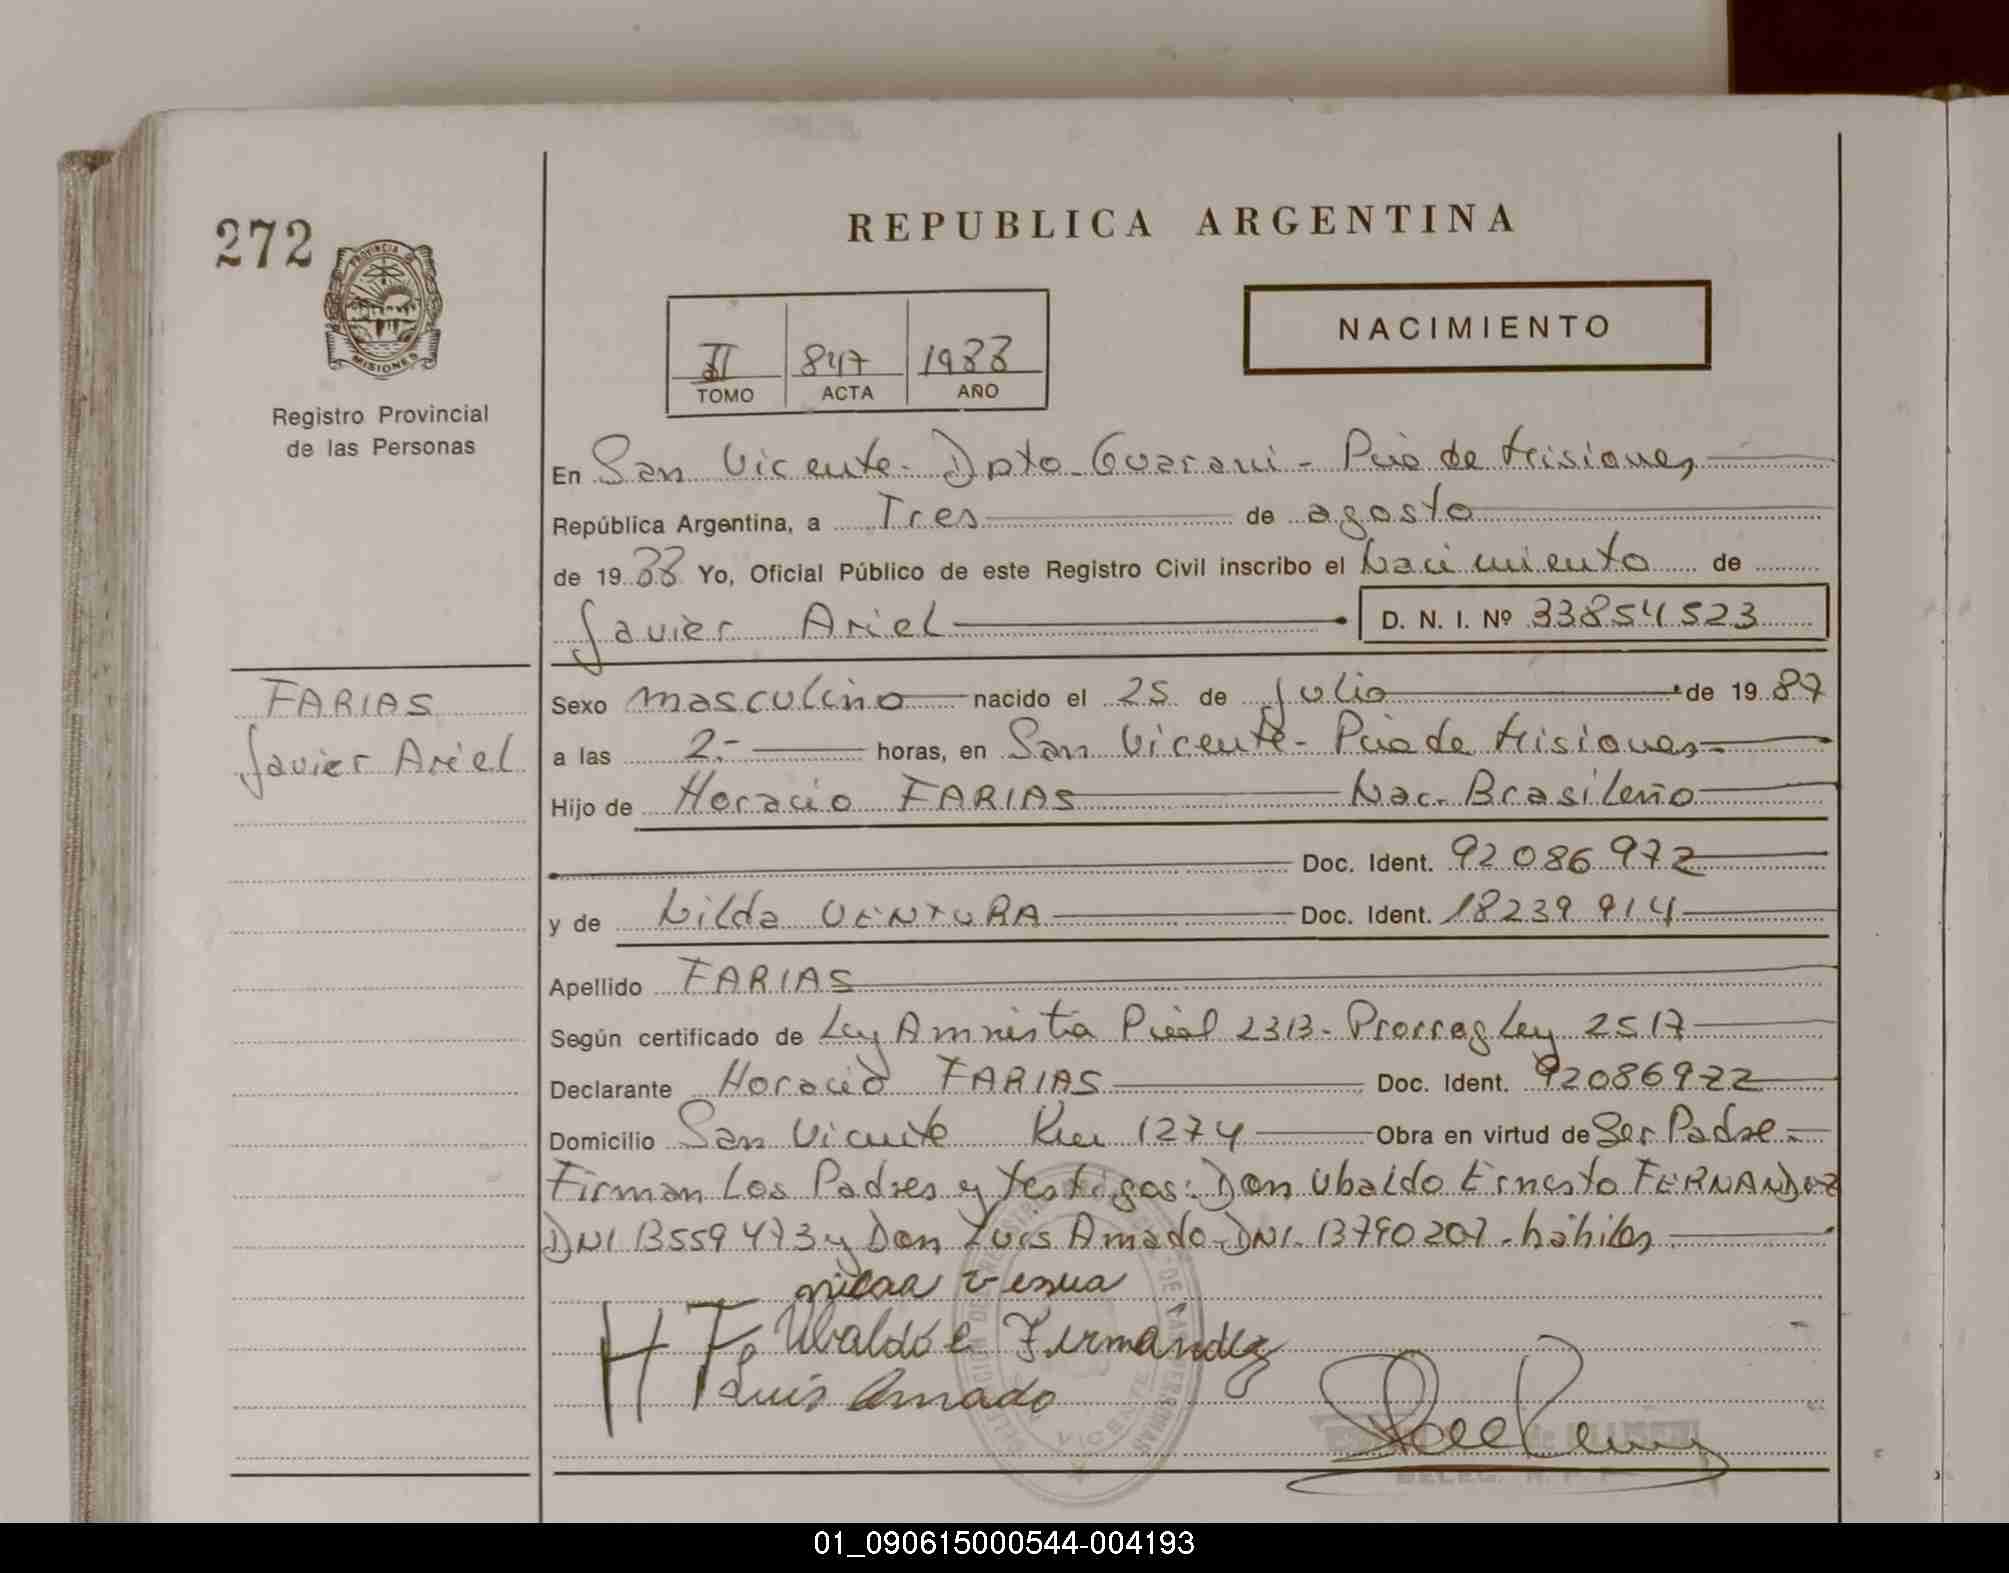 272
PROVINCIA DE
MISIONES
Registro Provincial
de las Personas
REPUBLICA ARGENTINA
NACIMIENTO
II 847 1988
TOMO ACTA AÑO
En San Vicente - Dpto. Guarani - Pcia de Misiones
República Argentina, a Tres de agosto
de 1988 Yo, Oficial Público de este Registro Civil inscribo el Nacimiento de
Javier Ariel D. N. I. Nº 33854523
FARIAS
Javier Ariel
Sexo masculino nacido el 25 de Julio de 1987
a las 2.- horas, en San Vicente - Pcia de Misiones
Hijo de Horacio FARIAS Nac. Brasileño
Doc. Ident. 92086972
y de Nilda VENTURA Doc. Ident. 18239914
Apellido FARIAS
Según certificado de Ley Amnistia Pcial 2313 - Prorrog Ley 2517
Declarante Horacio FARIAS Doc. Ident. 92086972
Domicilio San Vicente Km 1274 Obra en virtud de Ser Padre.-
Firman Los Padres y testigos: Don Ubaldo Ernesto FERNANDEZ
DNI 13559473 y Don Luis Amado - DNI. 13790207 - hábiles
H F Ubaldo e Fernández
Luis Amado
VICENTE
DELEG. R. P. P.
01_090615000544-004193